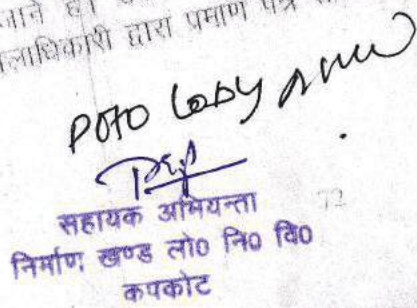 जाने ह
लाधिकारी द्वारा प्रमाण पत्र
POTO
सहायक अभियन्ता
निर्माण खण्ड लो० नि० वि०
कपकोट